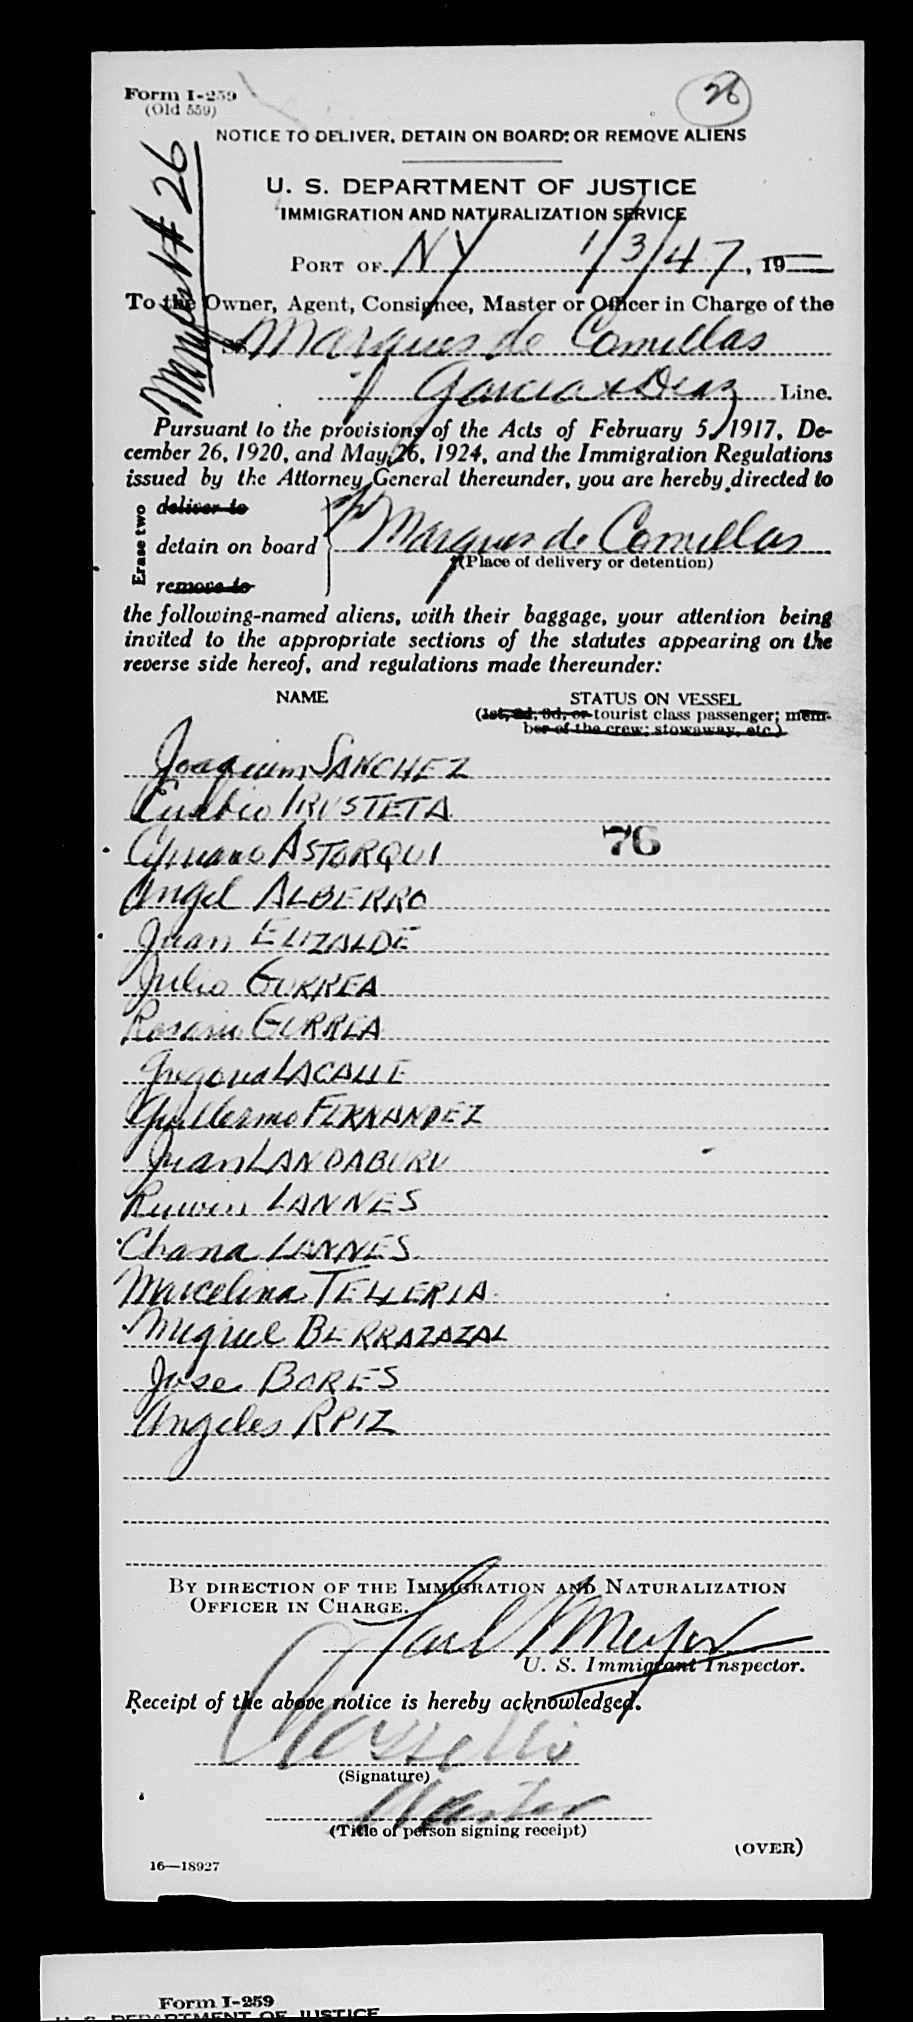 Form I-259
(Old 559)
26
NOTICE TO DELIVER, DETAIN ON BOARD, OR REMOVE ALIENS
Manifest # 26
U. S. DEPARTMENT OF JUSTICE
IMMIGRATION AND NATURALIZATION SERVICE
PORT OF NY 1/3/47, 19
To the Owner, Agent, Consignee, Master or Officer in Charge of the
SS Marques de Comillas
Garcia & Diaz Line.
Pursuant to the provisions of the Acts of February 5, 1917, De-
cember 26, 1920, and May 26, 1924, and the Immigration Regulations
issued by the Attorney General thereunder, you are hereby directed to
Erase two
deliver to
detain on board Marques de Comillas
(Place of delivery or detention)
remove to
the following-named aliens, with their baggage, your attention being
invited to the appropriate sections of the statutes appearing on the
reverse side hereof, and regulations made thereunder:
NAME STATUS ON VESSEL
(1st, 2d, 3d, or tourist class passenger; mem-
ber of the crew; stowaway, etc.)
Joaquim SANCHEZ
Eusebio IRUSTETA
Cipriano ASTORQUI
76
Angel ALBERRO
Juan ELIZALDE
Julio GURREA
Rosario GURREA
Gregoria LACALLE
Guillermo FERNANDEZ
Juan LANDABURU
Ruwin LANNES
Chana LANNES
Marcelina TELLERIA
Miguel BERRAZAZAL
Jose BORES
Angeles RPIZ
BY DIRECTION OF THE IMMIGRATION AND NATURALIZATION
OFFICER IN CHARGE.
U. S. Immigrant Inspector.
Receipt of the above notice is hereby acknowledged.
(Signature)
Master
(Title of person signing receipt)
(OVER)
16—18927
Form I-259
U. S. DEPARTMENT OF JUSTICE